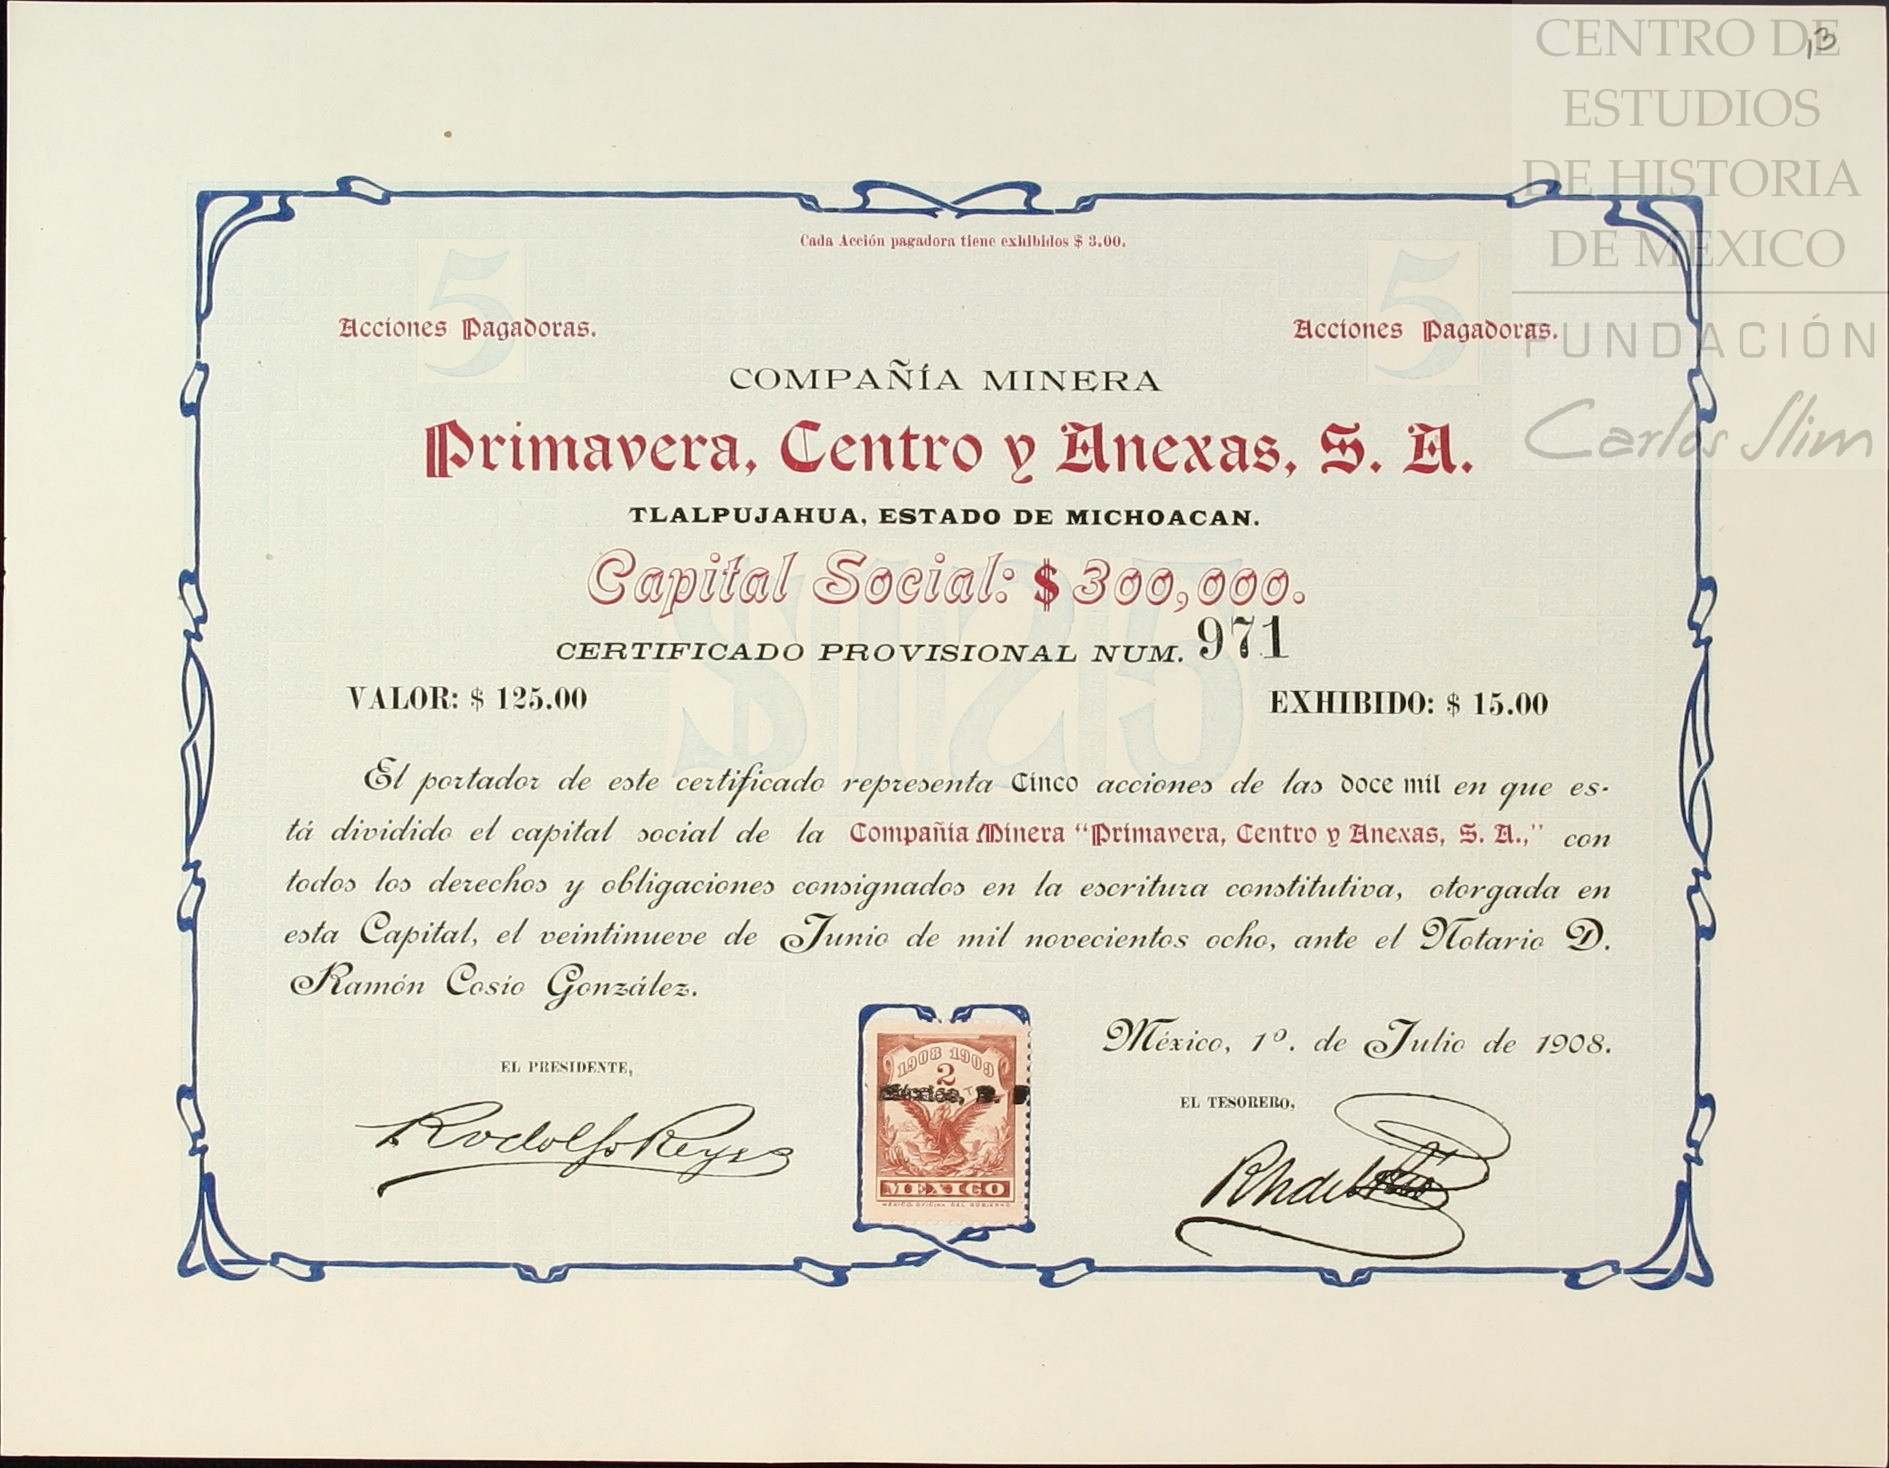 CENTRO DE
ESTUDIOS
DE HISTORIA
DE MEXICO
FUNDACIÓN
Carlos Slim
13
Cada Acción pagadora tiene exhibidos $ 3.00.
5 5
Acciones Pagadoras. Acciones Pagadoras.
COMPAÑÍA MINERA
Primavera, Centro y Anexas, S. A.
TLALPUJAHUA, ESTADO DE MICHOACAN.
Capital Social: $ 300,000.
CERTIFICADO PROVISIONAL NUM. 971
$125
VALOR: $ 125.00 EXHIBIDO: $ 15.00
El portador de este certificado representa Cinco acciones de las doce mil en que es-
tá dividido el capital social de la Compañía Minera "Primavera, Centro y Anexas, S. A.," con
todos los derechos y obligaciones consignados en la escritura constitutiva, otorgada en
esta Capital, el veintinueve de Junio de mil novecientos ocho, ante el Notario D.
Ramón Cosío González.
México, 1º. de Julio de 1908.
EL PRESIDENTE,
Rodolfo Reyes
1908 1909
2
México, D.
MEXICO
MEXICO. OFICINA DEL GOBIERNO
EL TESORERO,